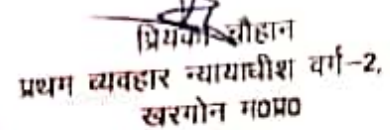 प्रियंका चौहान
प्रथम व्यवहार न्यायाधीश वर्ग-2,
खरगोन म0प्र0